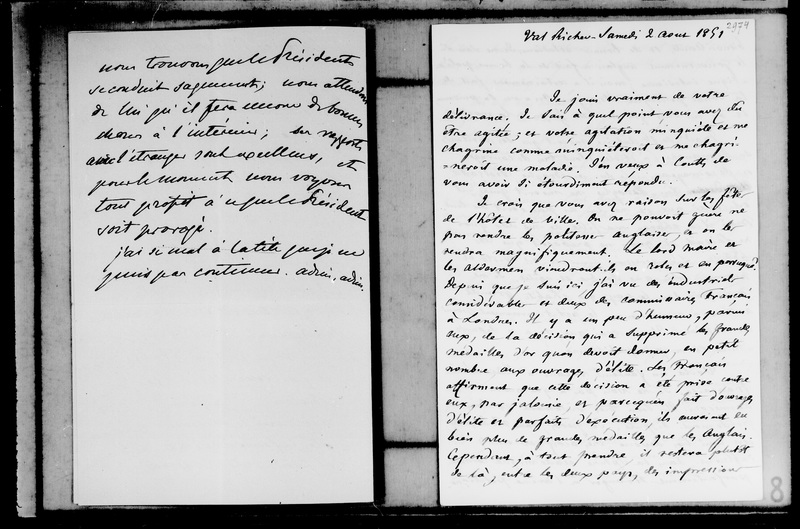 nous trouvons que le Président
se conduit sagement; nous attendons
de lui qu'il fera encore de bonnes
choses à l'intérieur; ses rapports
avec l'étranger sont excellens, et
pour le moment nous voyons
tout profit à ce que le Président
soit prorogé.
j'ai si mal à la tête que je ne
puis pas continuer. adieu, adieu.
2974
Val Richer - Samedi 2 aout 1851
Je jouis vraiment de votre
délivrance. Je sais à quel point vous avez du
être agitée; et votre agitation m'inquiète et me
chagrine comme m'inquièteroit et me chagri-
-neroit une maladie. J'en veux à Coutts de
vous avoir si étourdiment répondu.
Je crois que vous avez raison sur les fêtes
de l'hôtel de ville. On ne pouvoit guère ne
pas rendre les politesses anglaises, et on les
rendra magnifiquement. Le lord maire et
les aldermen viendront-ils en robes et en perruques?
Depuis que je suis ici j'ai vu des industriels
considérables et deux des commissaires Français
à Londres. Il y a un peu d'humeur, parmi
eux, de la décision qui a supprimé les grandes
médailles d'or qu'on devoit donner, en petit
nombre aux ouvrages d'élite. Les Français
affirment que cette décision a été prise contre
eux, par jalousie, et parcequ'en fait d'ouvrages
d'élite et parfaits d'exécution, ils auroient eu
bien plus de grandes médailles que les Anglais.
Cependant, à tout prendre, il restera plutôt
de là, entre les deux pays, des impressions
8